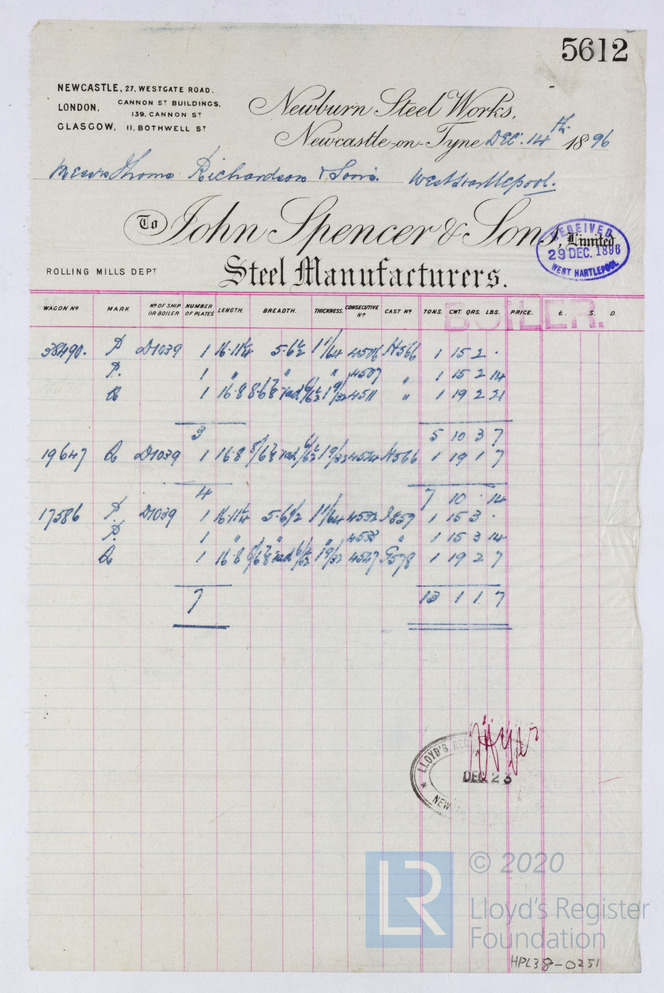 5612
NEWCASTLE, 27. WESTGATE ROAD.
LONDON, CANNON ST BUILDINGS, 139, CANNON ST
GLASGOW, 11, BOTHWELL ST
Newburn Steel Works,
Newcastle-on-Tyne DEC. 14th 1896
Messrs Thomas Richardson & Sons. West Hartlepool.
To John Spencer & Sons, Limited
RECEIVED
29 DEC. 1896
WEST HARTLEPOOL
ROLLING MILLS DEPT
Steel Manufacturers.
BOILER.
WAGON No MARK No OF SHIP OR BOILER NUMBER OF PLATES LENGTH. BREADTH. THICKNESS. CONSECUTIVE No CAST No TONS. CWT. QRS. LBS. PRICE. £. S. D.
38490. D1039 1 16-11¼ 5-6½ 1 1/64 4506 H566 1 15 2 .
1 " " " 4507 " 1 15 2 14
1 16-8 4511 " 1 19 2 21
3 5 10 3 7
19647 D1039 1 16-8 H566 1 19 1 7
4 7 10 . 14
17586 D1039 1 16-11¼ 5-6½ 1 1/64 4532 1 15 3 .
1 " " " 4533 " 1 15 3 14
1 16-8 4547 1 19 2 7
7 13 1 1 7
LLOYD'S REG
DEC. 23
NEW
LR
© 2020
Lloyd's Register
Foundation
HPL38-0251